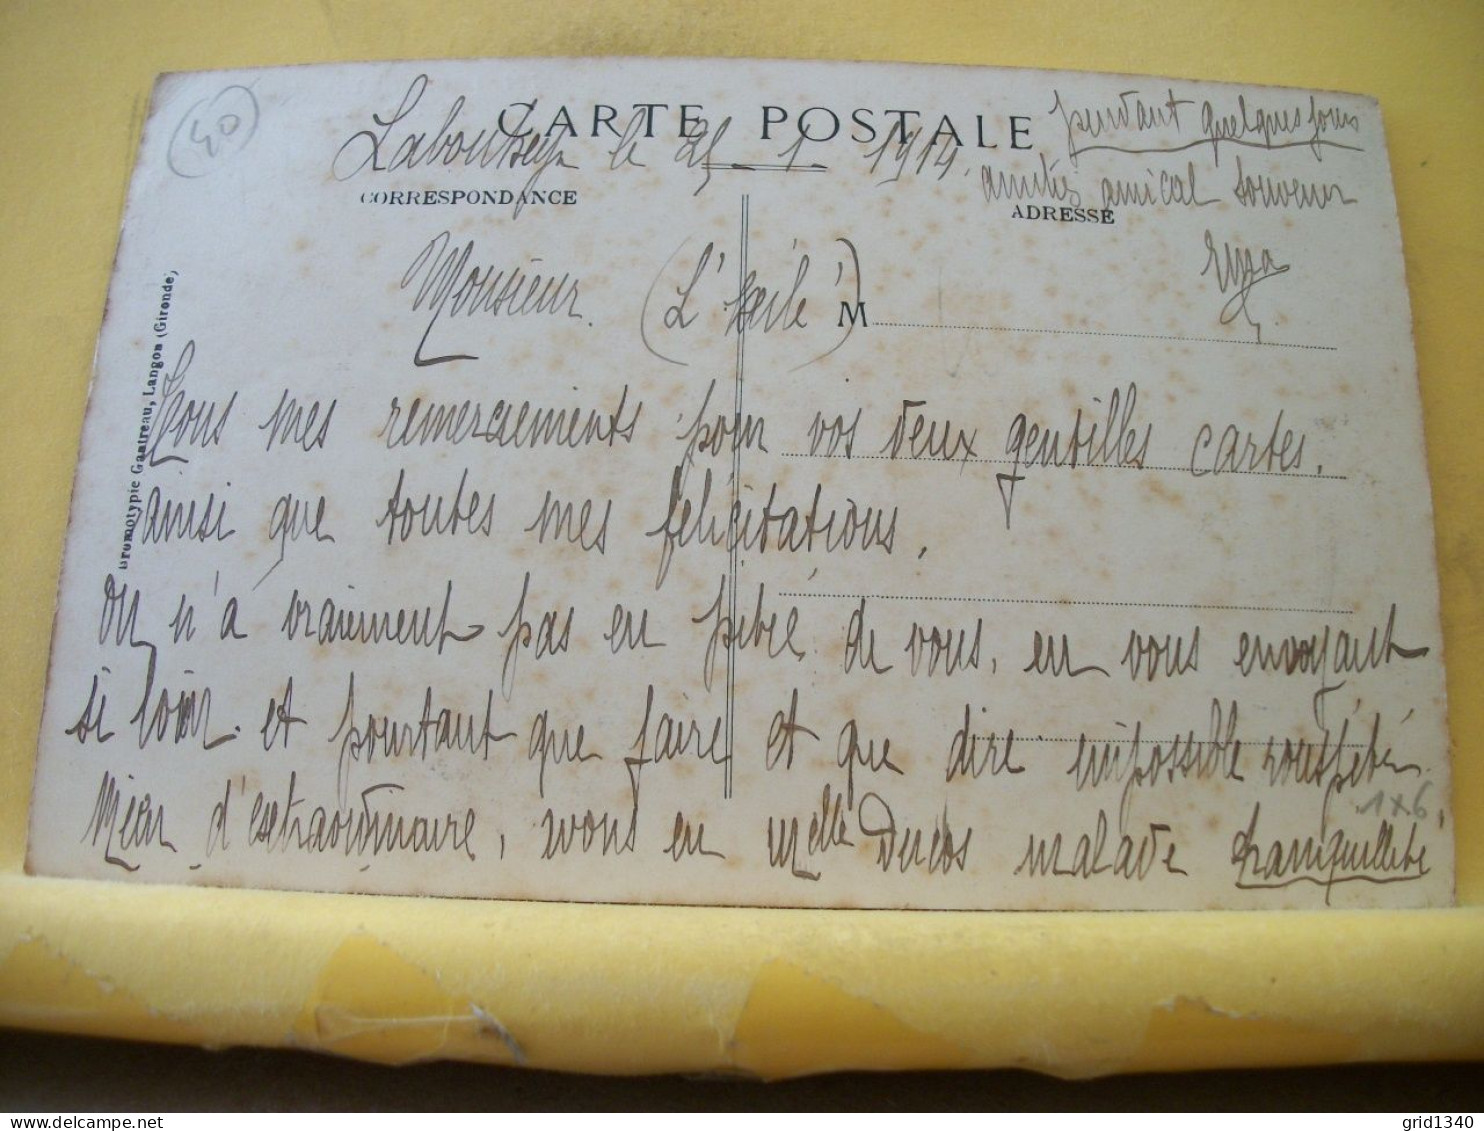 40
CARTE POSTALE
Labouheyre le 25-1-1914.
pendant quelques jours
amitiés amical souvenir
CORRESPONDANCE
ADRESSE
Monsieur. (L'exilé)
M
Bromotypie Gautreau, Langon (Gironde)
Tous mes remerciements pour vos deux gentilles cartes.
ainsi que toutes mes félicitations.
On n'a vraiment pas eu pitié de vous, en vous envoyant
si loin. et pourtant que faire et que dire impossible rouspéter
Rien d'extraordinaire, avons eu Melle Ducos malade tranquillité
1x6
grid1340